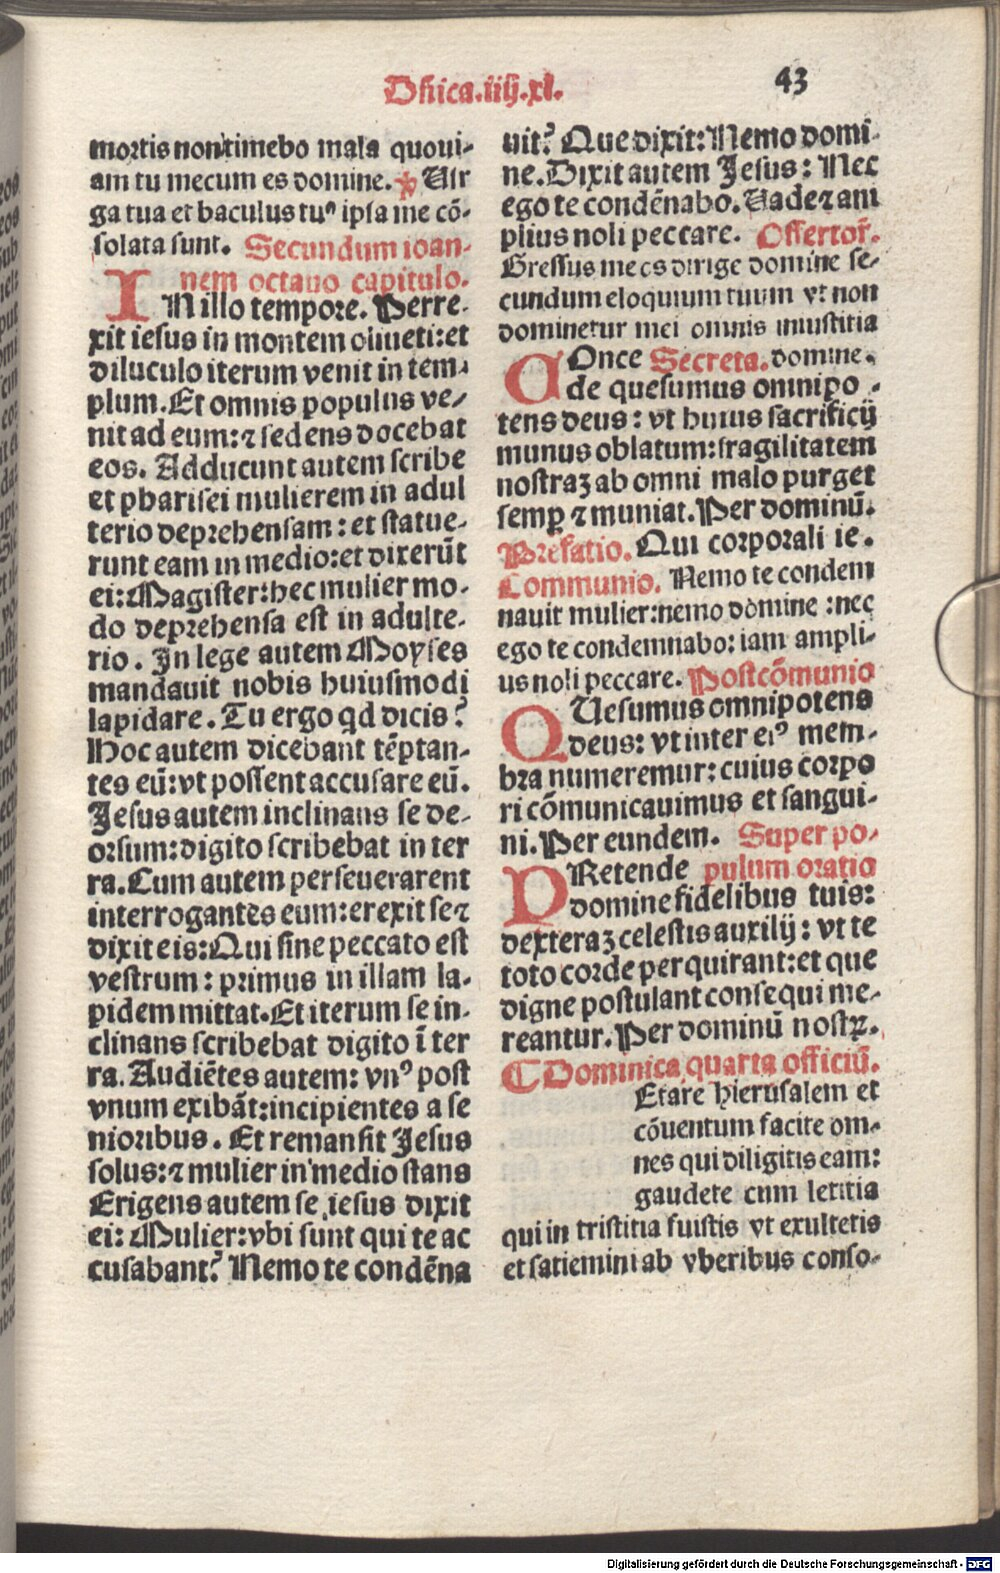 Dñica.iiij.xl.
43
mortis non timebo mala quoui-
am tu mecum es domine. ℣ Uir
ga tua et baculus tuꝰ ipsa me cō-
solata sunt. Secundum ioan-
nem octauo capitulo.
IN illo tempore. Perre-
xit iesus in montem oliueti: et
diluculo iterum venit in tem-
plum. Et omnis populus ve-
nit ad eum: ⁊ sedens docebat
eos. Adducunt autem scribe
et pharisei mulierem in adul
terio deprehensam: et statue-
runt eam in medio: et dixerūt
ei: Magister: hec mulier mo-
do deprehensa est in adulte-
rio. In lege autem Moyses
mandauit nobis huiusmodi
lapidare. Tu ergo qd dicis?
Hoc autem dicebant tēptan-
tes eū: vt possent accusare eū.
Jesus autem inclinans se de-
orsum: digito scribebat in ter
ra. Cum autem perseuerarent
interrogantes eum: erexit se ⁊
dixit eis: Qui sine peccato est
vestrum: primus in illam la-
pidem mittat. Et iterum se in-
clinans scribebat digito ī ter
ra. Audiētes autem: vnꝰ post
vnum exibāt: incipientes a se
nioribus. Et remansit Jesus
solus: ⁊ mulier in medio stans
Erigens autem se iesus dixit
ei: Mulier: vbi sunt qui te ac
cusabant? Nemo te condēna
uit? Que dixit: Nemo domi-
ne. Dixit autem Jesus: Nec
ego te condēnabo. Uade ⁊ am
plius noli peccare. Offertor̄.
Gressus meos dirige domine se-
cundum eloquium tuum vt non
dominetur mei omnis iniustitia
COnce Secreta. domine.
de quesumus omnipo-
tens deus: vt huius sacrificij
munus oblatum: fragilitatem
nostraꝫ ab omni malo purget
semꝑ ⁊ muniat. Per dominū.
Prefatio. Qui corporali ie.
Communio. Nemo te condem
nauit mulier: nemo domine: nec
ego te condemnabo: iam ampli-
us noli peccare. Postcōmunio
QUesumus omnipotens
deus: vt inter eiꝰ mem-
bra numeremur: cuius corpo
ri cōmunicauimus et sangui-
ni. Per eundem. Super po-
PRetende pulum oratio
domine fidelibus tuis:
dexteraꝫ celestis auxilij: vt te
toto corde perquirant: et que
digne postulant consequi me-
reantur. Per dominū nostꝝ.
¶ Dominica quarta officiū.
Etare hierusalem et
cōuentum facite om-
nes qui diligitis eam:
gaudete cum letitia
qui in tristitia fuistis vt exultetis
et satiemini ab vberibus conso-
Digitalisierung gefördert durch die Deutsche Forschungsgemeinschaft - DFG